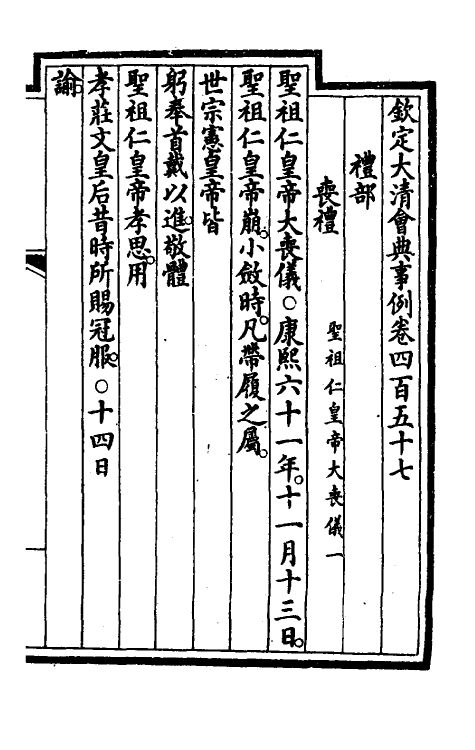 欽定大清會典事例卷四百五十七
禮部
喪禮 聖祖仁皇帝大喪儀一
聖祖仁皇帝大喪儀○康熙六十一年。十一月十三日。
聖祖仁皇帝崩。小斂時。凡帶履之屬。
世宗憲皇帝皆
躬奉首戴以進。敬體
聖祖仁皇帝孝思。用
孝莊文皇后昔時所賜冠服。○十四日
諭。